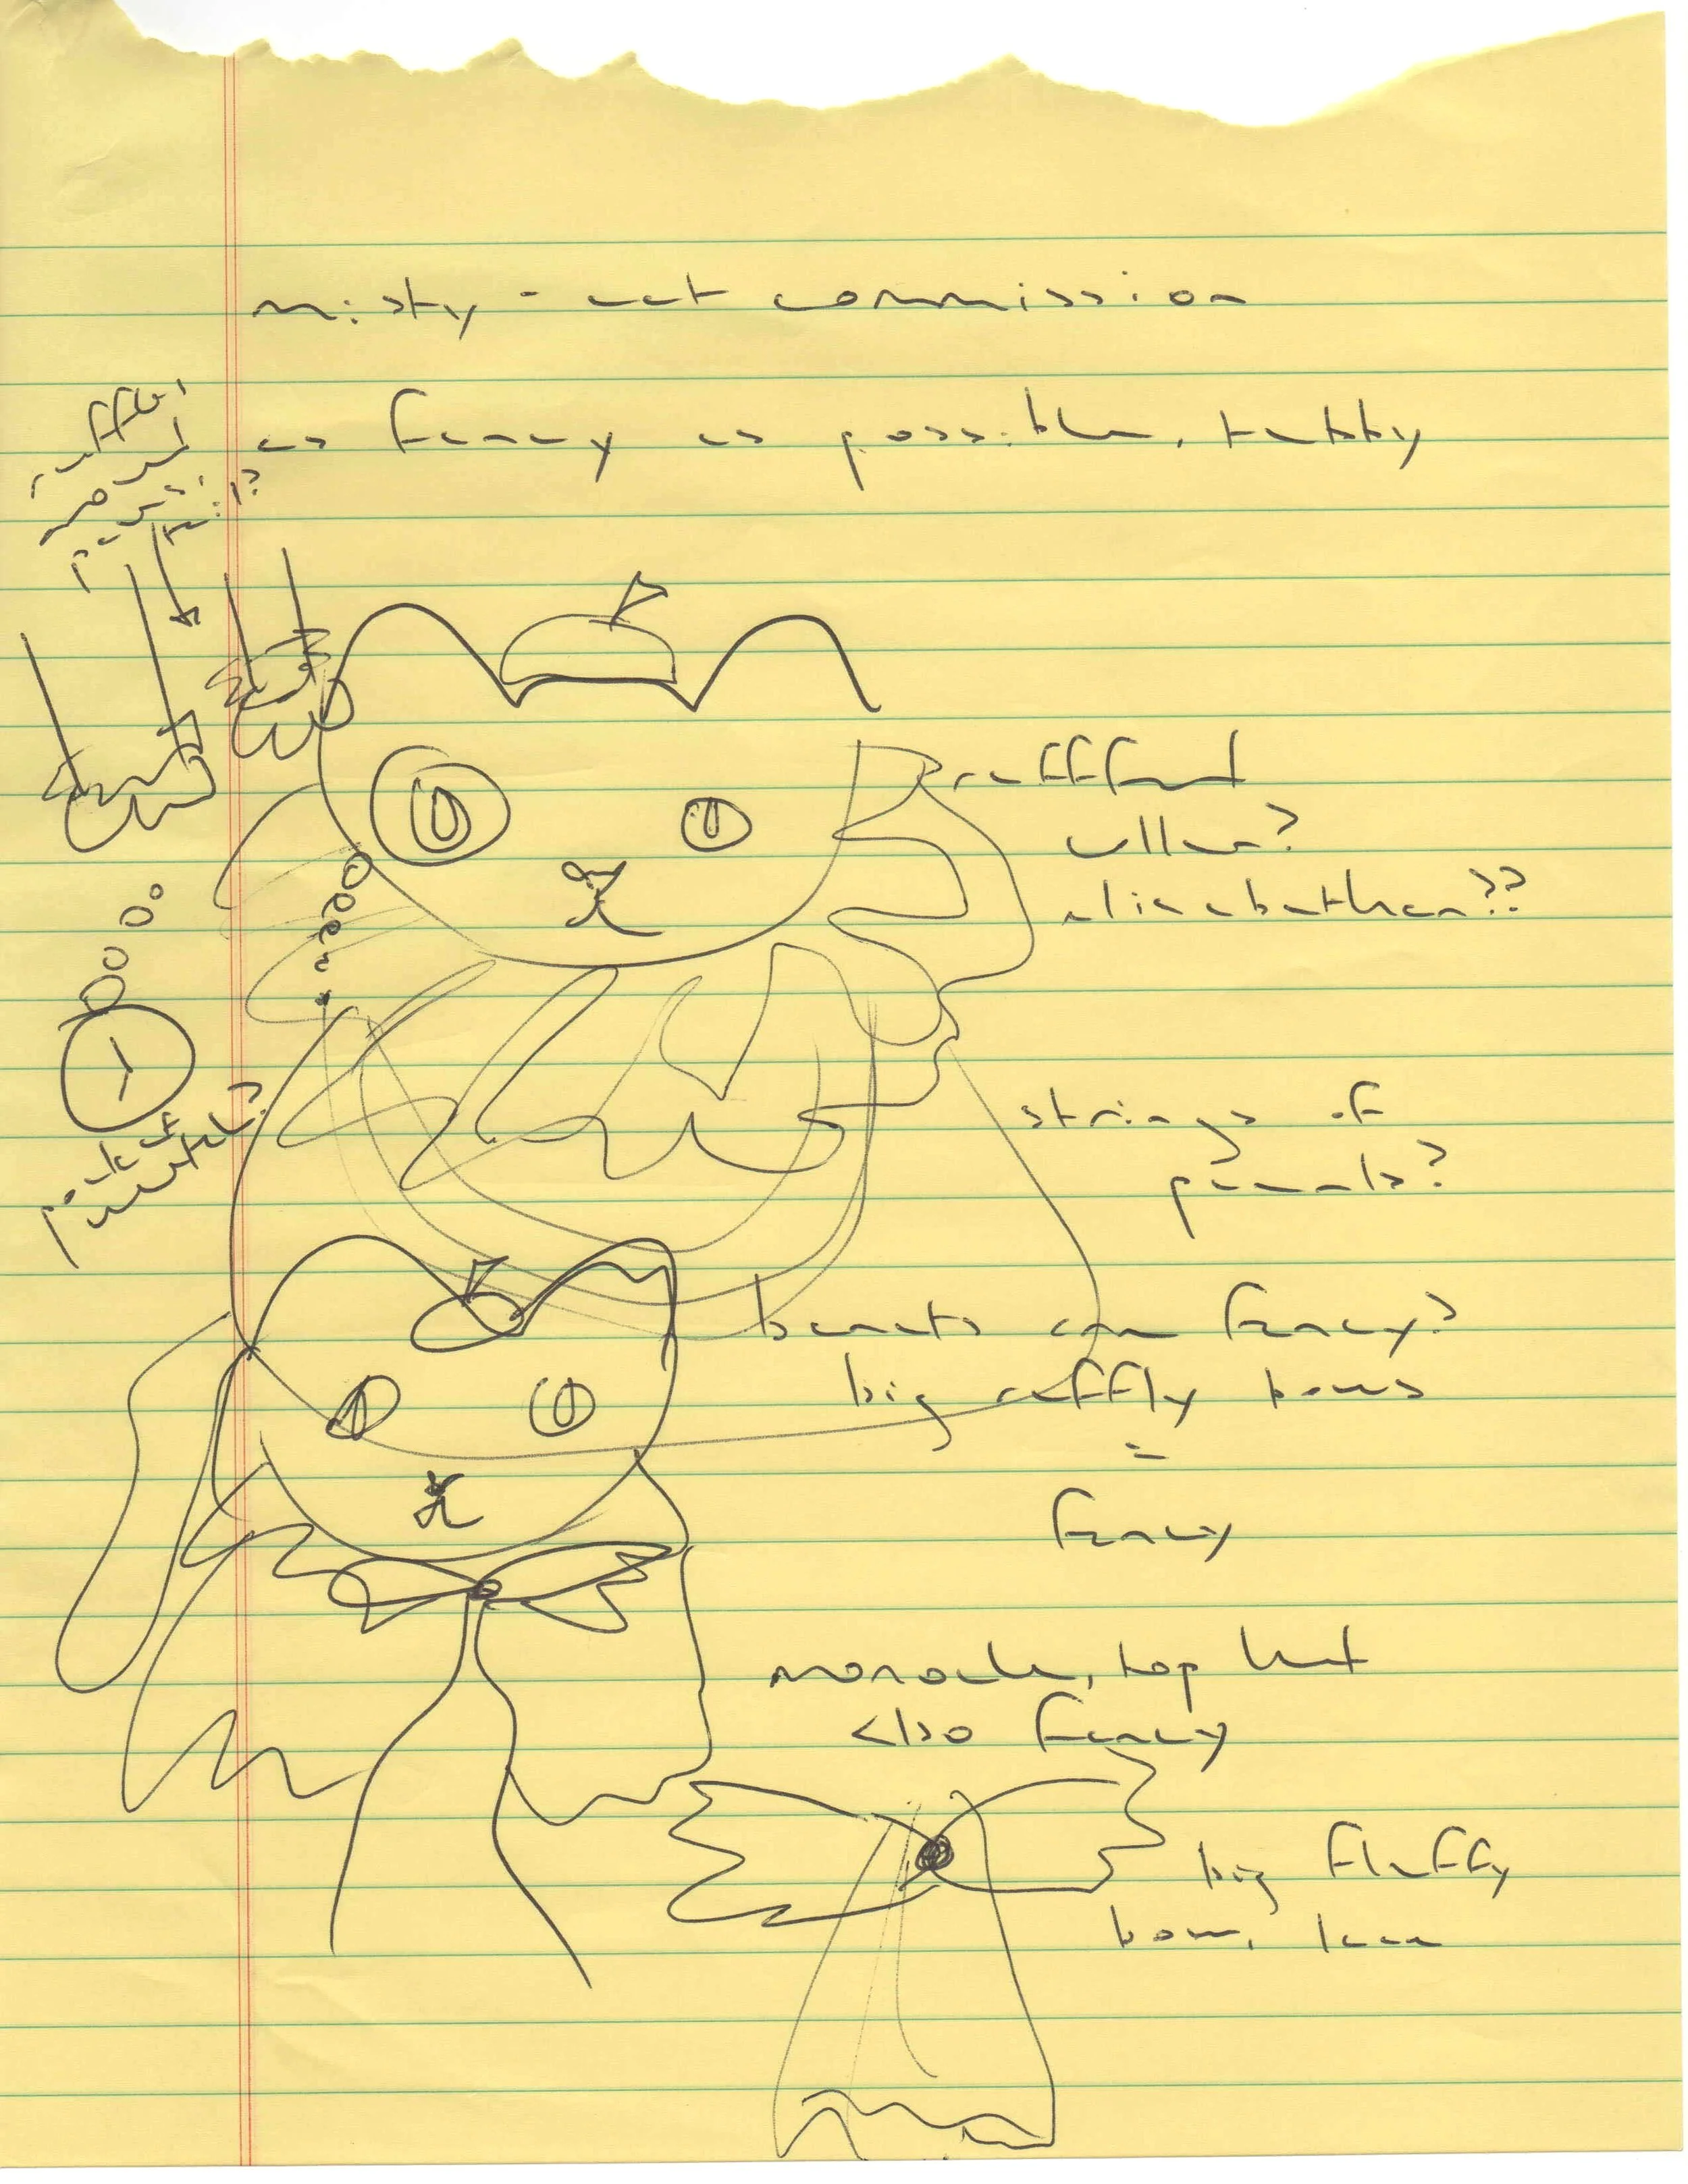 misty - cat commission
as fancy as possible, tabby
ruffled
ruffled
collar?
elizabethan??
pocket
watch?
strings of
pearls?
berets are fancy?
big ruffly bows
=
fancy
monocle, top hat
also fancy
big fluffy
bow, lace